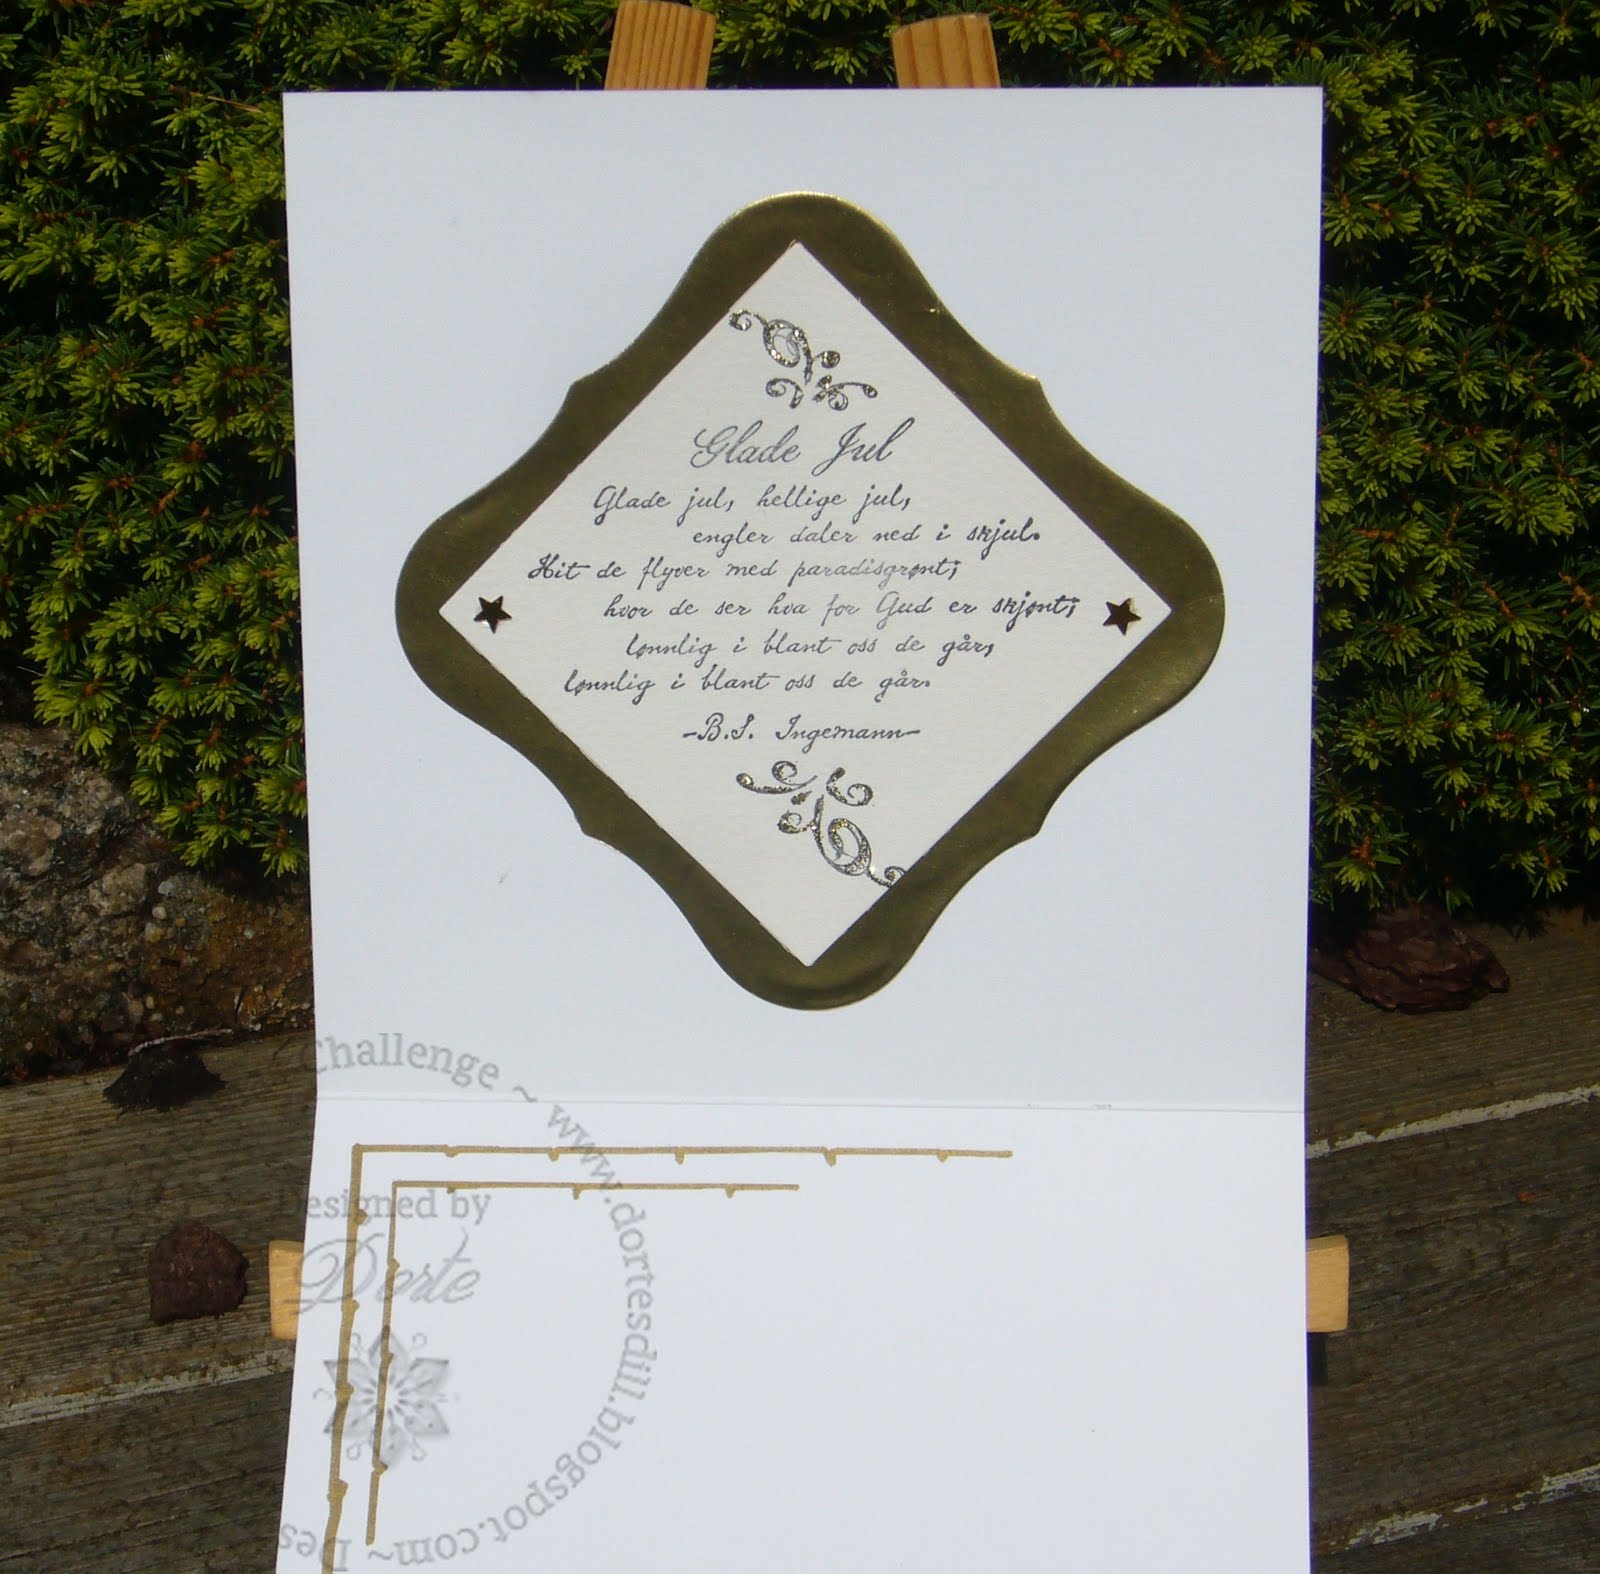 Glade Jul
Glade jul, hellige jul,
engler daler ned i skjul.
Hit de flyver med paradisgrønt;
hvor de ser hva for Gud er skjønt;
lønnlig i blant oss de går,
lønnlig i blant oss de går.
-B.S. Ingemann-
Challenge ~ www.dortesdill.blogspot.com~ Des
Designed by
Dorte